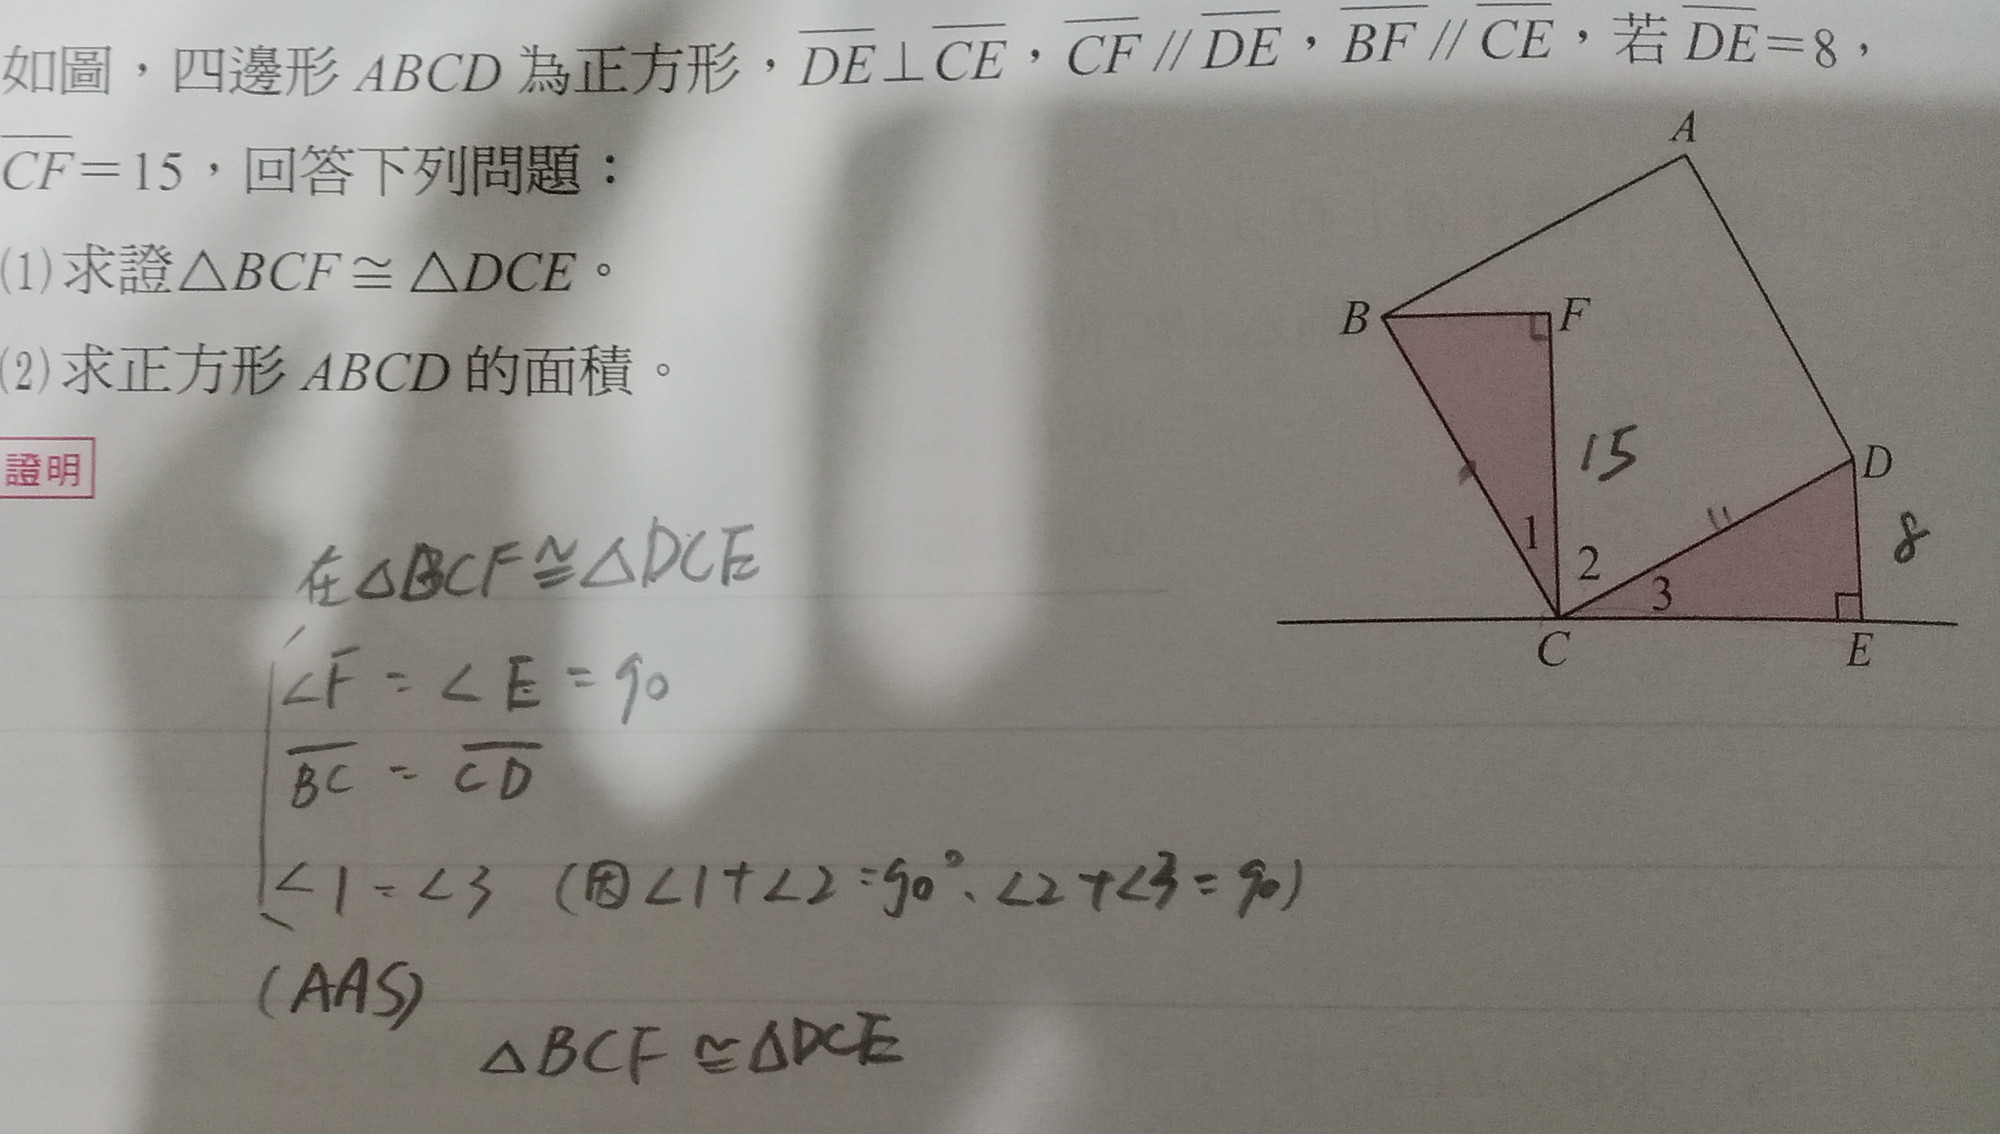 如圖，四邊形 ABCD 為正方形，DE⊥CE，CF // DE，BF // CE，若 DE=8，
CF=15，回答下列問題：
(1) 求證△BCF≅△DCE。
(2) 求正方形 ABCD 的面積。
證明
A
B
F
15
D
8
1
2
3
C
E
在△BCF≅△DCE
∠F = ∠E = 90
BC = CD
∠1 = ∠3 (因∠1+∠2=90°、∠2+∠3=90)
(AAS)
△BCF≅△DCE